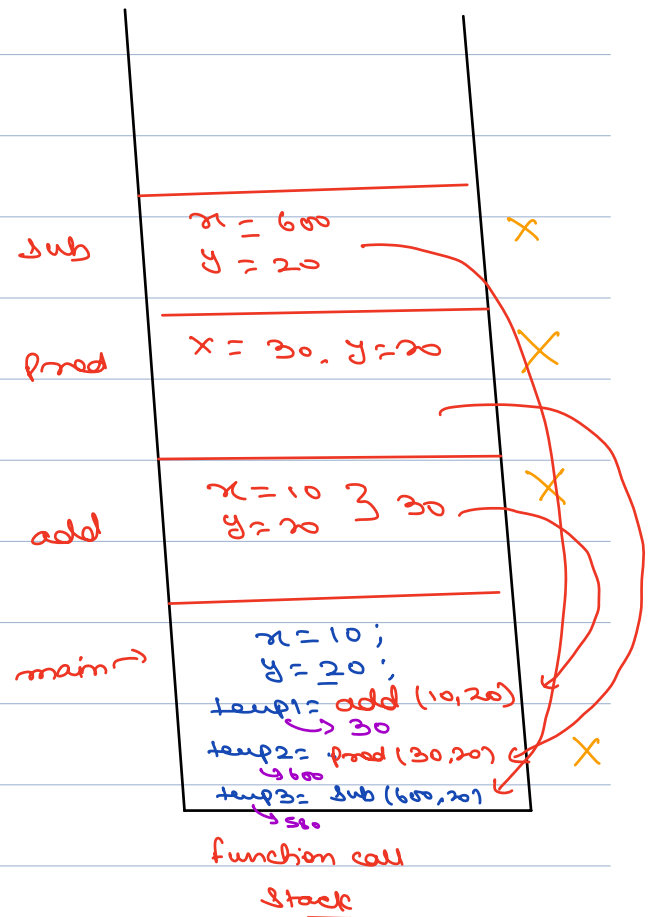 sub
x = 600
y = 20
Prod
x = 30, y=20
add
x=10 } 30
y=20
main→
x=10;
y=20;
temp1= add (10,20)
→ 30
temp2= prod (30,20)
→600
temp3= sub (600,20)
→580
function call
stack